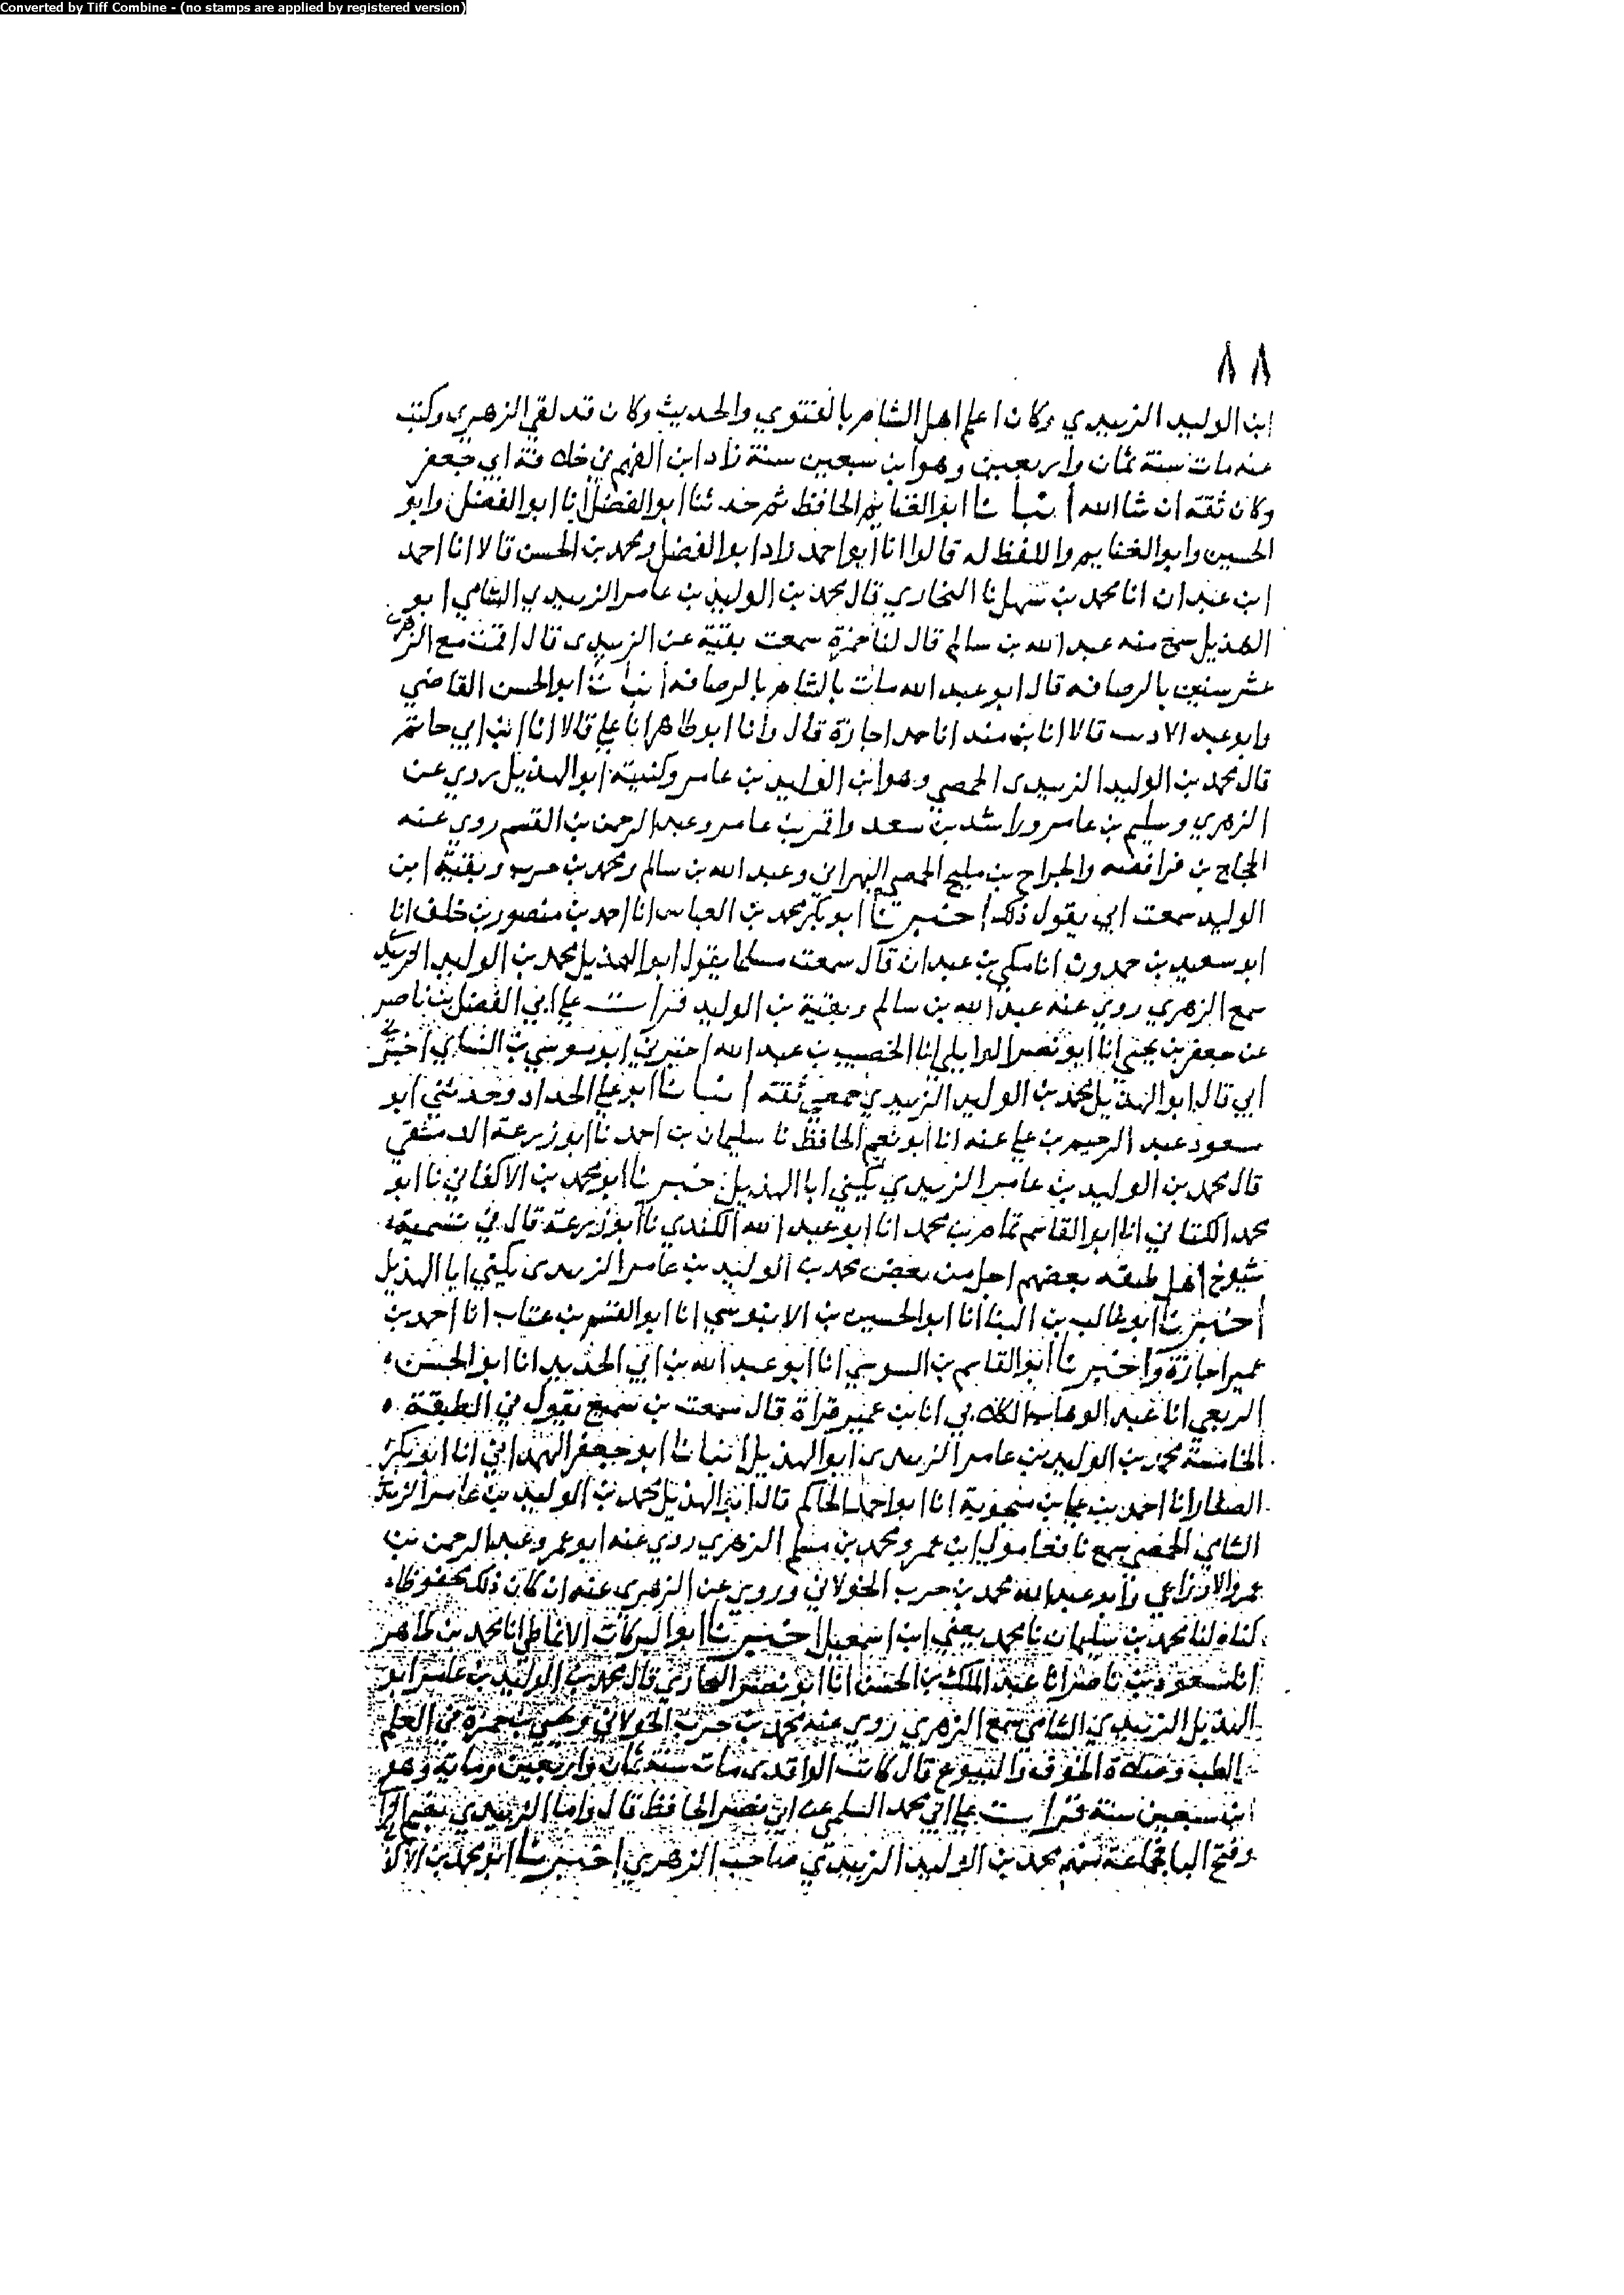 Converted by Tiff Combine - (no stamps are applied by registered version)
٨٨
ابن الوليد الزبيدي وكان اعلم اهل الشام بالفتوي والحديث وكان قد لقي الزهري وكتب
عنه مات سنة ثمان واربعين وهو ابن سبعين سنة زاد ابن الفهم في خلافة ابي جعفر
وكان ثقة ان شا الله أنبانا ابو الغنايم الحافظ ثم حدثنا ابو الفضل أنا ابو الفضل وابو
الحسين وابو الغنايم واللفظ له قالوا انا ابو احمد زاد ابو الفضل ومحمد بن الحسن قالا انا احمد
ابن عبدان انا محمد بن سهل نا البخاري قال محمد بن الوليد بن عامر الزبيدي الشامي ابو
الهذيل سمع منه عبد الله بن سالم قال لنا حمزة سمعت بقية عن الزبيدي قال اقمت مع الزهري
عشر سنين بالرصافه قال ابو عبد الله مات بالشام بالرصافه أنبانا ابو الحسن القاضي
وابو عبد الاديب قالا انا بن منده انا حمد اجازة قال وانا ابو طاهر انا علي قالا انا ابن ابي حاتم
قال محمد بن الوليد الزبيدي الحمصي وهو ابن الوليد بن عامر وكنيته ابو الهذيل روي عن
الزهري وسليم بن عامر وراشد بن سعد ولقمن بن عامر وعبد الرحمن بن القسم روي عنه
الحجاج بن فرافصه والجراح بن مليح الحمصي البهراني وعبد الله بن سالم ومحمد بن حرب وبقية ابن
الوليد سمعت ابي يقول ذلك اخبرنا ابو بكر محمد بن العباس انا احمد بن منصور بن خلف انا
ابو سعيد بن حمدون انا مكي بن عبدان قال سمعت مسلما يقول ابو الهذيل محمد بن الوليد الزبيدي
سمع الزهري روي عنه عبد الله بن سالم وبقية بن الوليد قرات علي ابي الفضل بن ناصر
عن جعفر بن يحيي انا ابو نصر الوايلي انا الخصيب بن عبد الله اخبرني ابو موسي بن النساي اخبرني
ابي قال ابو الهذيل محمد بن الوليد الزبيدي حمصي ثقه أنبانا ابو علي الحداد وحدثني ابو
مسعود عبد الرحيم بن علي عنه انا ابو نعيم الحافظ نا سليمان بن احمد نا ابو زرعة الدمشقي
قال محمد بن الوليد بن عامر الزبيدي يكني ابا الهذيل اخبرنا ابو محمد بن الاكفاني نا ابو
محمد الكتاني انا ابو القاسم تمام بن محمد انا ابو عبد الله الكندي نا ابو زرعة قال في تسمية
شيوخ اهل طبقه بعضهم اجل من بعض محمد بن الوليد بن عامر الزبيدي يكني ابا الهذيل
أخبرنا ابو غالب بن البنا انا ابو الحسين بن الابنوسي انا ابو القسم بن عتاب انا احمد بن
عمير اجازة وأخبرنا ابو القاسم بن السوسي انا ابو عبد الله بن ابي الحديد انا ابو الحسن
الربعي انا عبد الوهاب الكلابي انا بن عمير قراة قال سمعت بن سميع يقول في الطبقة
الخامسة محمد بن الوليد بن عامر الزبيدي ابو الهذيل أنبانا ابو جعفر الهمداني انا ابو بكر
الصفار انا احمد بن علي بن منجوية انا ابو احمد الحاكم قال ابو الهذيل محمد بن الوليد بن عامر الزبيدي
الشامي الحمصي سمع نافعا مولي ابن عمر ومحمد بن مسلم الزهري روي عنه ابو عمرو عبد الرحمن بن
عمرو الاوزاعي وابو عبد الله محمد بن حرب الخولاني وروي عن الزهري عنه ان كان ذلك محفوظا
كناه لنا محمد بن سليمان نا محمد يعني ابن اسمعيل اخبرنا ابو البركات الانماطي انا محمد بن طاهر
انا مسعود بن ناصر انا عبد الملك بن الحسن انا ابو نصر البخاري قال محمد بن الوليد بن عامر ابو
الهذيل الزبيدي الشامي سمع الزهري روي عنه محمد بن حرب الخولاني ويحيي بن حمزة في العلم
والطب وصلاة الخوف والبيوع قال كاتب الواقدي مات سنة ثمان واربعين وماية وهو
ابن سبعين سنة قرات علي ابي محمد السلمي عن ابي نصر الحافظ قال واما الزبيدي بضم الزا
وفتح البا فجماعة منهم محمد بن الوليد الزبيدي صاحب الزهري اخبرنا ابو محمد بن الاكفا